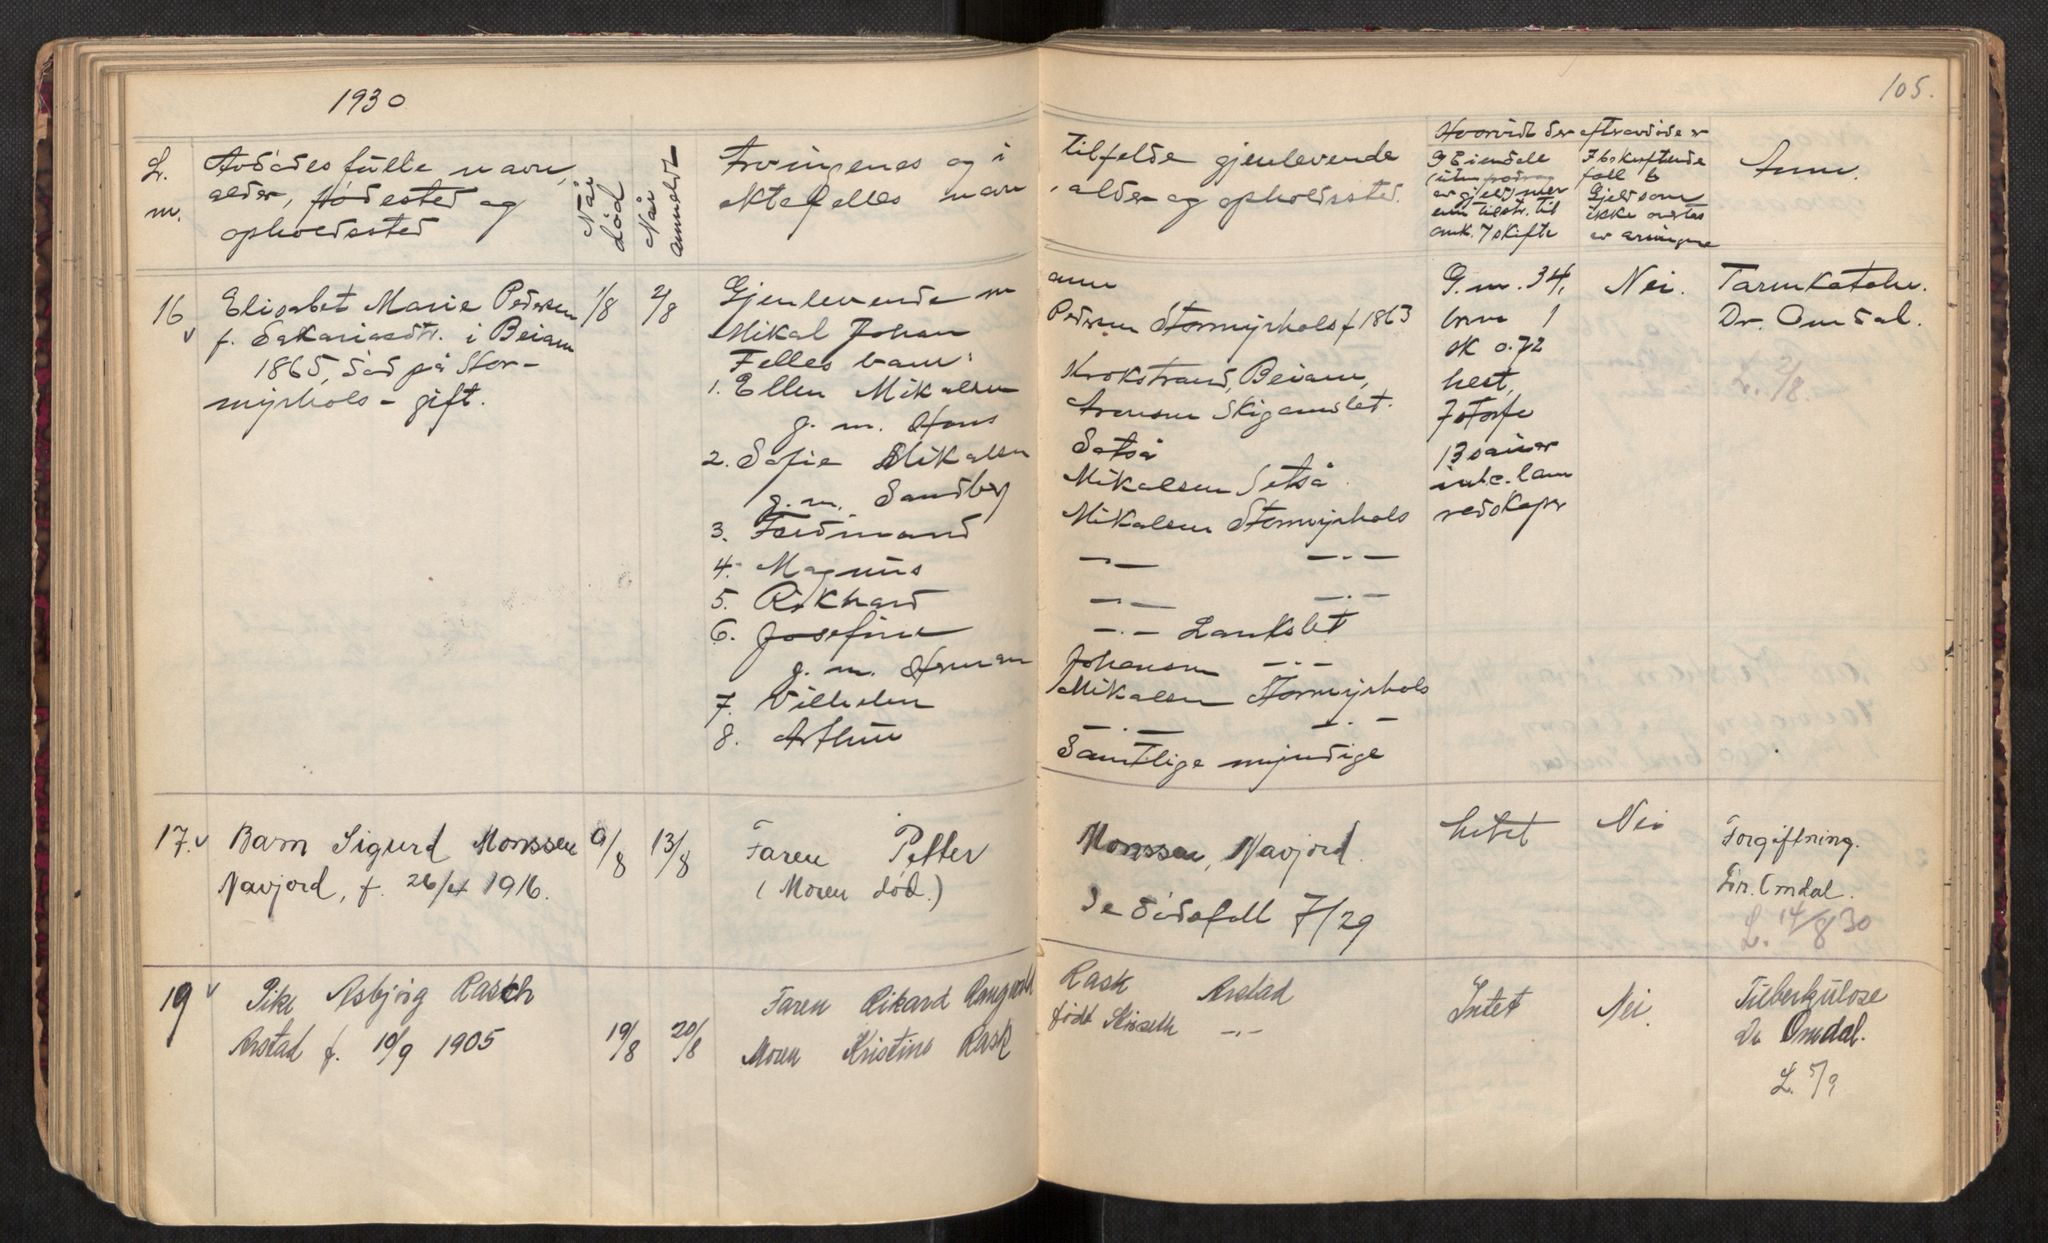 1930
105.
L.
m.
Avdødes fulle navn,
alder, fødested og
opholdssted
Når
død
Når
anmeldt
Arvingenes og i
ektefelles navn
tilfelde gjenlevende
, alder og opholdssted.
Hvorvidt der efter avdøde er
9 Eiendele
av gjeld) mer
enn tilstr. til
omk. 7 skifte
7 bekreftende
fall b
Gjeld som
ikke overtas
av arvingene
Anm.
16
v
Elisabet Marie Pedersen
f. Sakariasdtr. i Beiarn
1865, død på Stor-
myrhols - gift.
1/8
2/8
Gjenlevende m
Mikal Johan
Felles barn:
1. Ellen Mikalsen
g. m. Hans
2. Sofie Mikalsen
g. m. Sandberg
3. Ferdinand
4. Magnus
5. Rikhard
6. Josefine
g. m. Herman
7. Vilhelm
8. Arthur
ann
Pedersen Stormyrhols f 1863
Krokstrand, Beiarn,
Arensen Skigamslet.
Setså
Mikalsen Setså.
Mikalsen Stormyrhols
— —.—
— —.—
—.— Lankslet
Johansen —.—
Mikalsen Stormyrhols
—.— —.—
Samtlige myndige
G. m. 34,
brnr 1
sk 0.72
hest,
7 storfe
13 sauer
inkl. lam
redskaper
Nei.
Tarmkatarr.
Dr. Omdal.
L. 2/8.
17. v
Barn Sigurd Monssen
Navjord, f. 26/4 1916.
9/8
13/8
Faren Petter
(Moren død.)
Monssen, Navjord.
Se dødsfall 7/29
Intet
Nei
Forgiftning.
Dr. Omdal.
L. 14/8 30
19 v
Pike Asbjørg Rasch
Arstad f. 10/9 1905
19/8
20/8
Faren Rikard Rangvald
Moren Kristine Rask
Rask Arstad
født Misseth —.—
Intet
Nei.
Tuberkulose
Dr Omdal.
L. 5/9